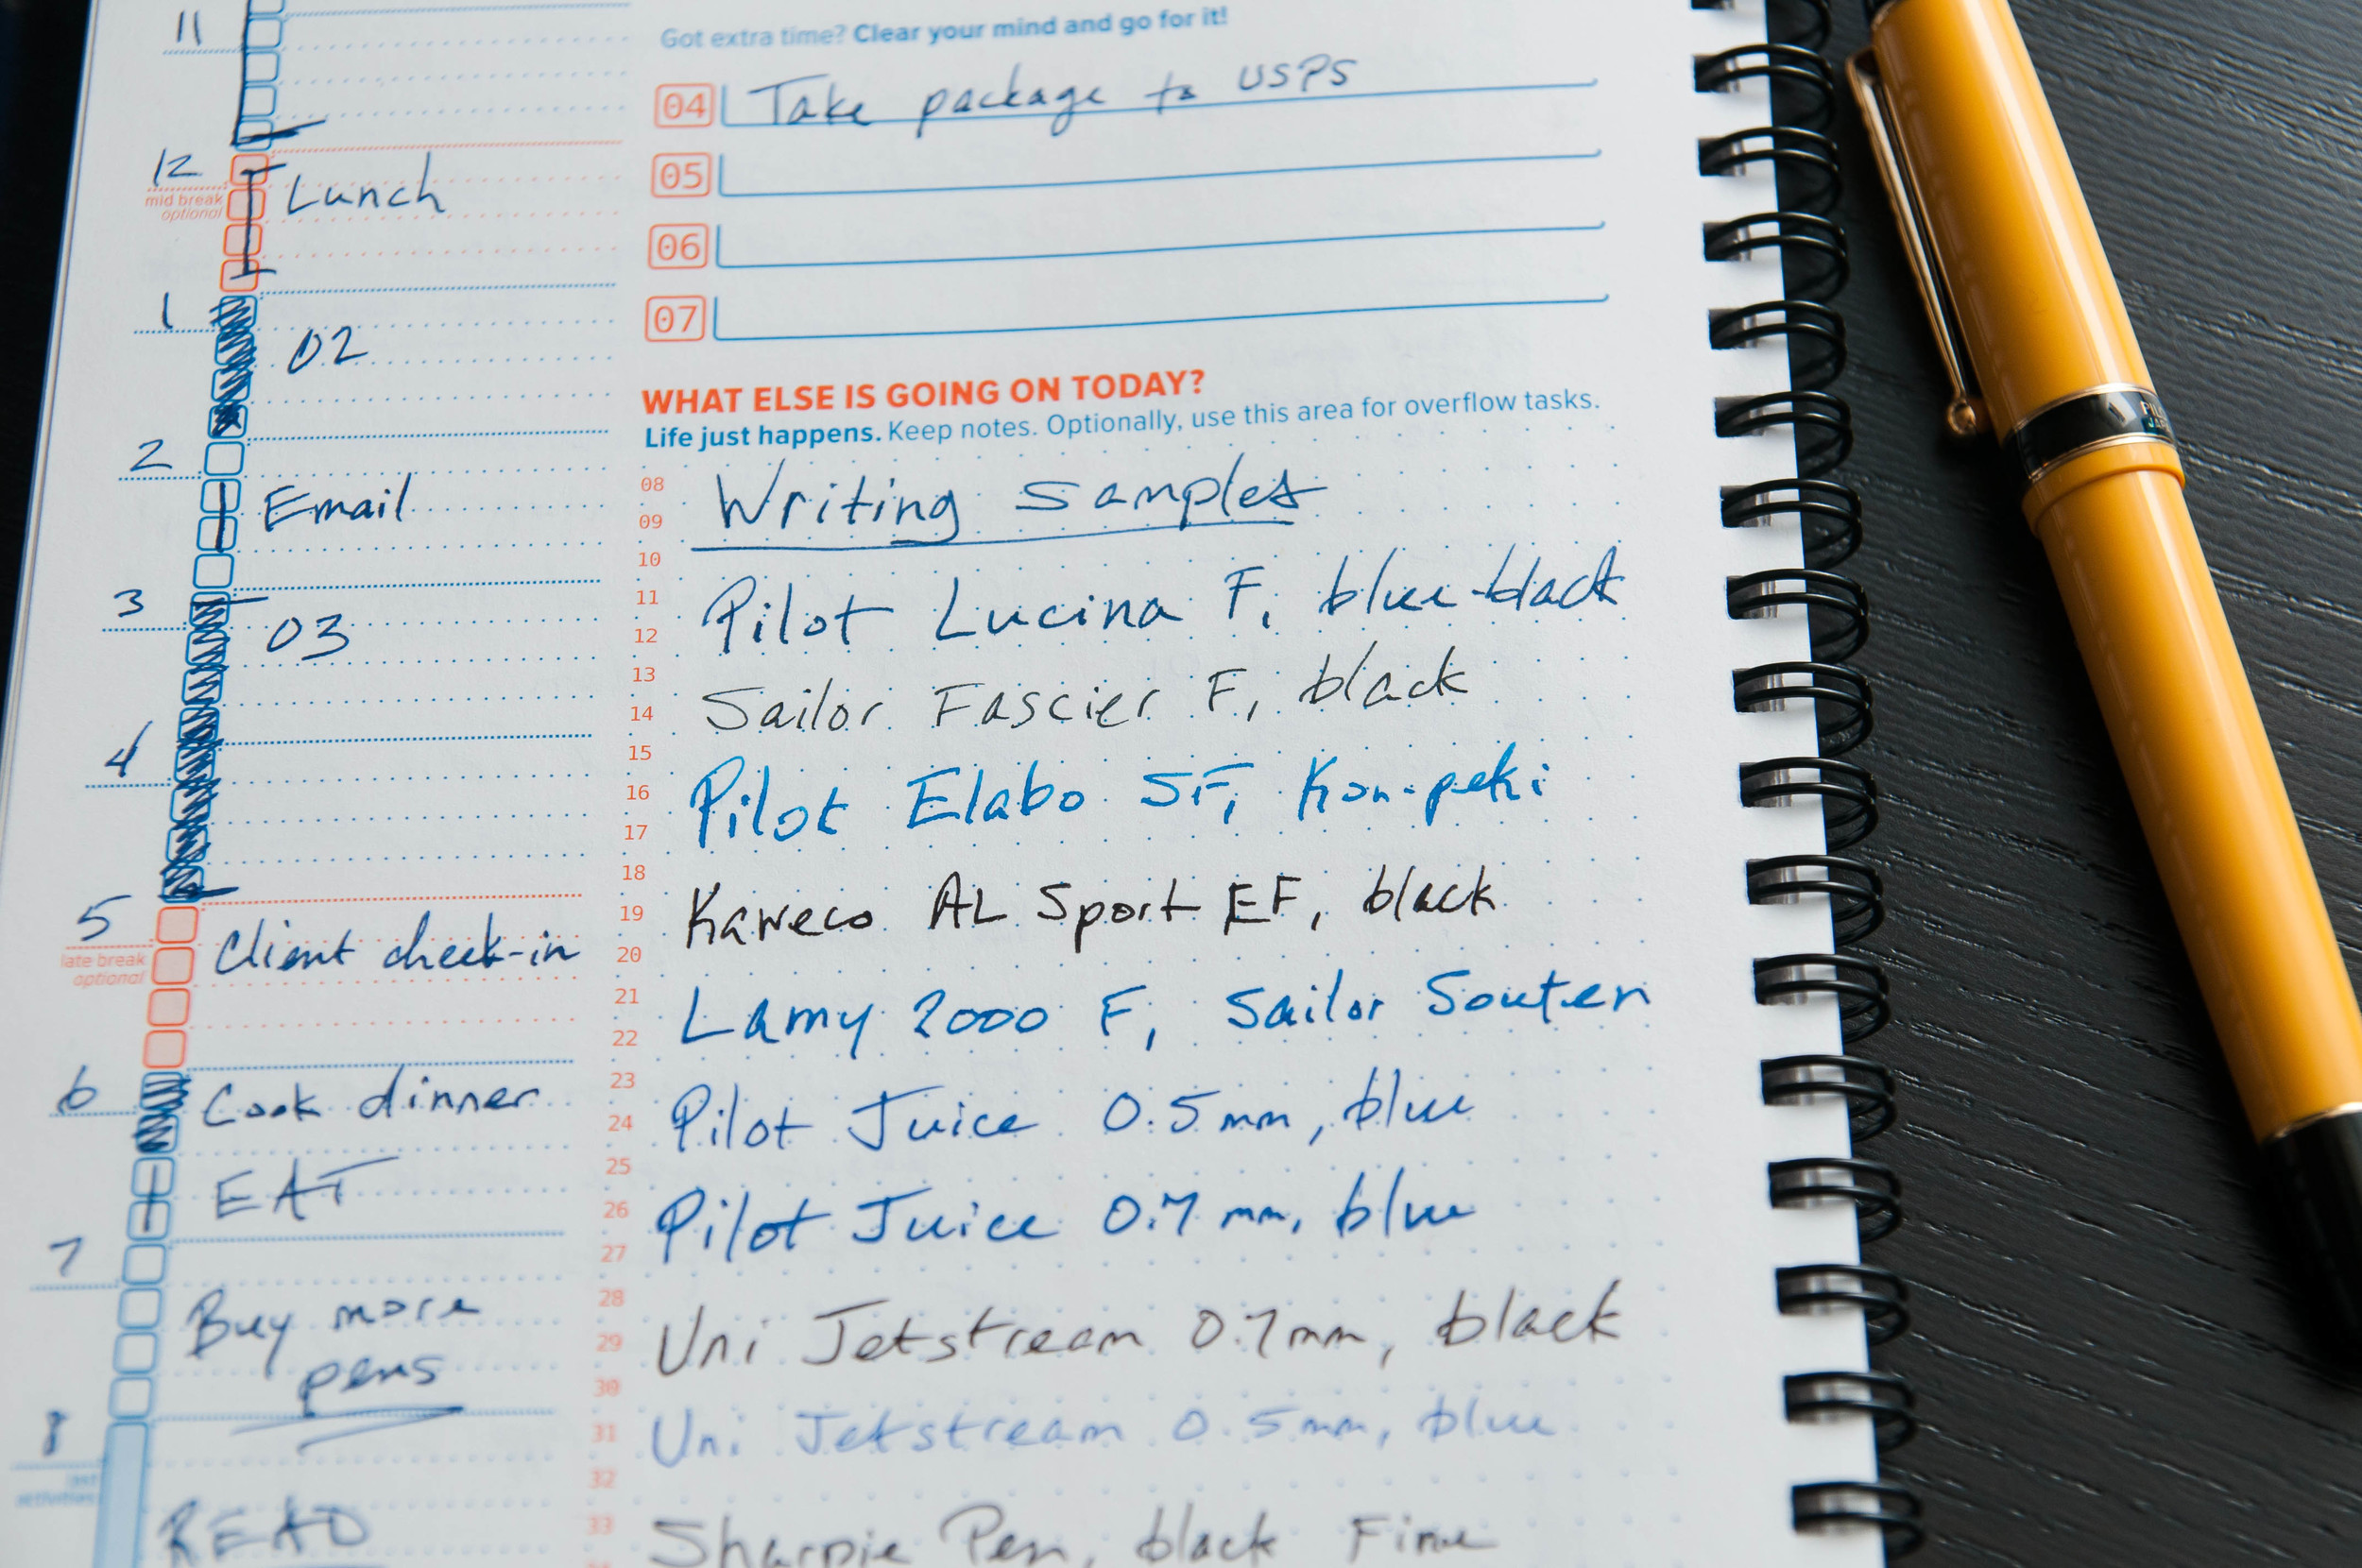 11
12
mid break
optional
Lunch
1
02
2
Email
3
03
4
5
late break
optional
Client check-in
6
Cook dinner
EAT
7
Buy more
pens
8
last
activities
READ
Got extra time? Clear your mind and go for it!
04 Take package to USPS
05
06
07
WHAT ELSE IS GOING ON TODAY?
Life just happens. Keep notes. Optionally, use this area for overflow tasks.
08 Writing samples
09
10
11 Pilot Lucina F, blue-black
12
13
14 Sailor Fascier F, black
15
16 Pilot Elabo SF, Kon-peki
17
18
19 Kaweco AL Sport EF, black
20
21 Lamy 2000 F, Sailor Souten
22
23
24 Pilot Juice 0.5 mm, blue
25
26 Pilot Juice 0.7 mm, blue
27
28
29 Uni Jetstream 0.7mm, black
30
31 Uni Jetstream 0.5mm, blue
32
33 Sharpie Pen, black Fine